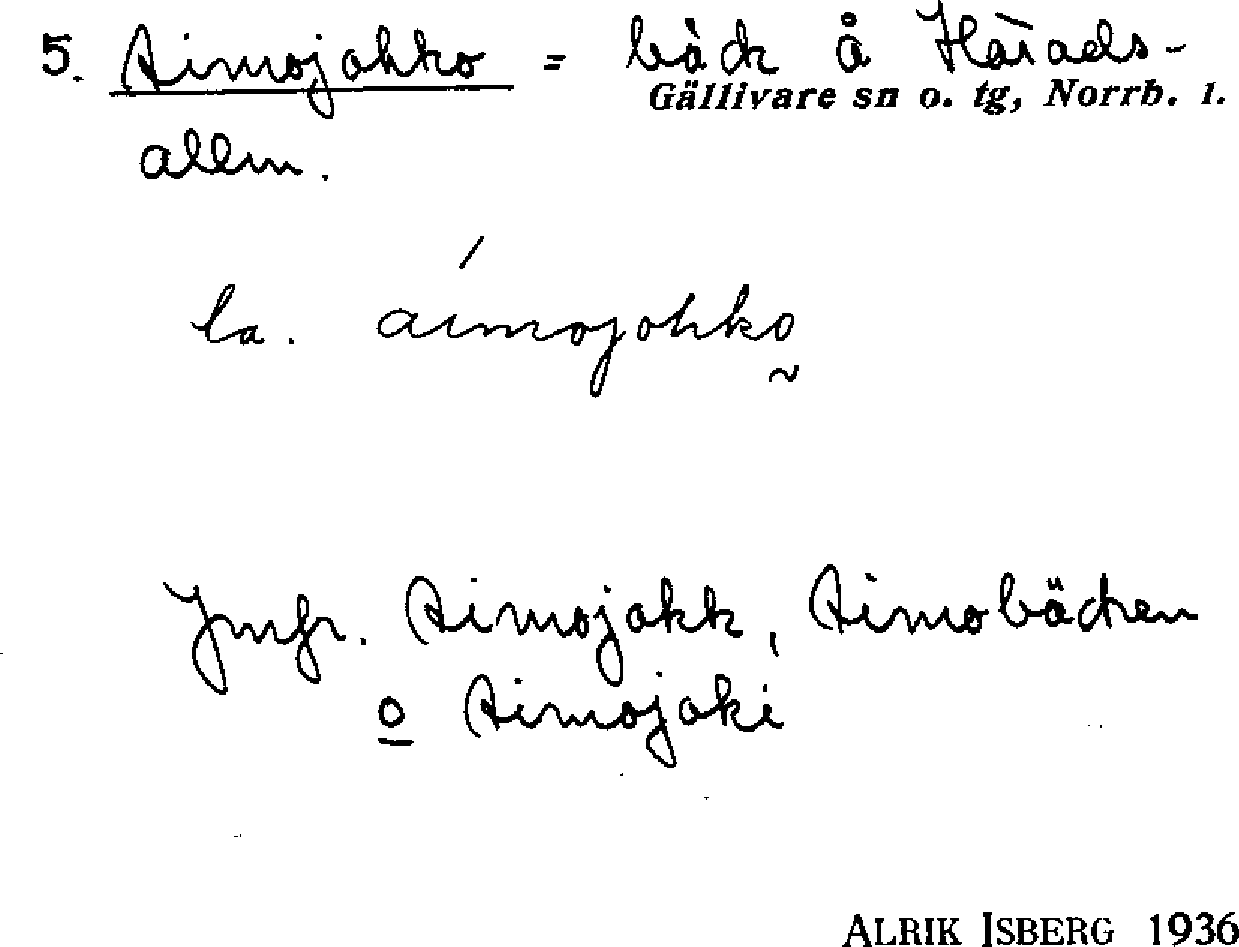 5. Aimojohko = bäck å Härads-
Gällivare sn o. tg, Norrb. l.
allm.
la. áimojohko̰
Jmfr. Aimojokk, Aimobäcken
o Aimojoki
ALRIK ISBERG 1936